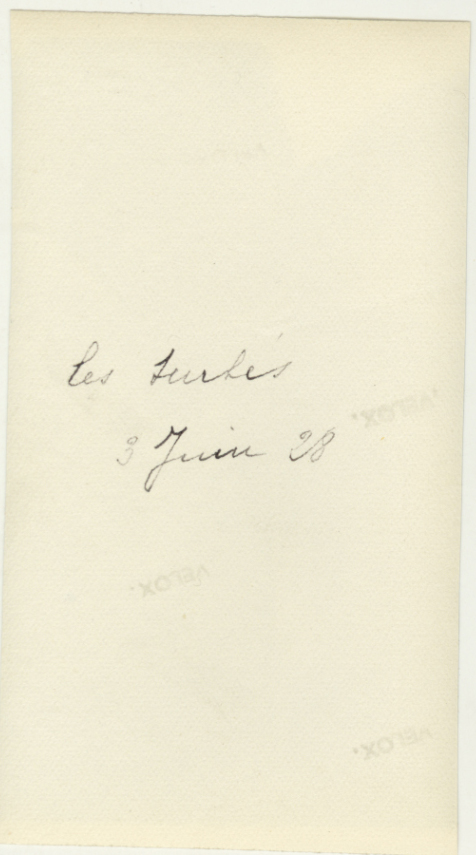 les
3 Juin 28
VELOX.
VELOX.
VELOX.